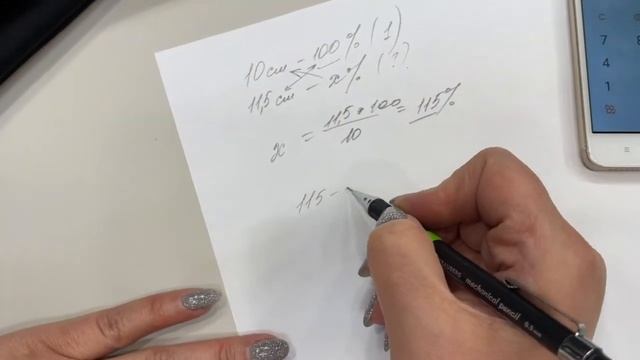 10 см – 100% (1)
11,5 см – x% (??
x = 11,5 • 100 / 10 = 115%
115 –
mechanical pencil
0.5 mm
C
7
4
1